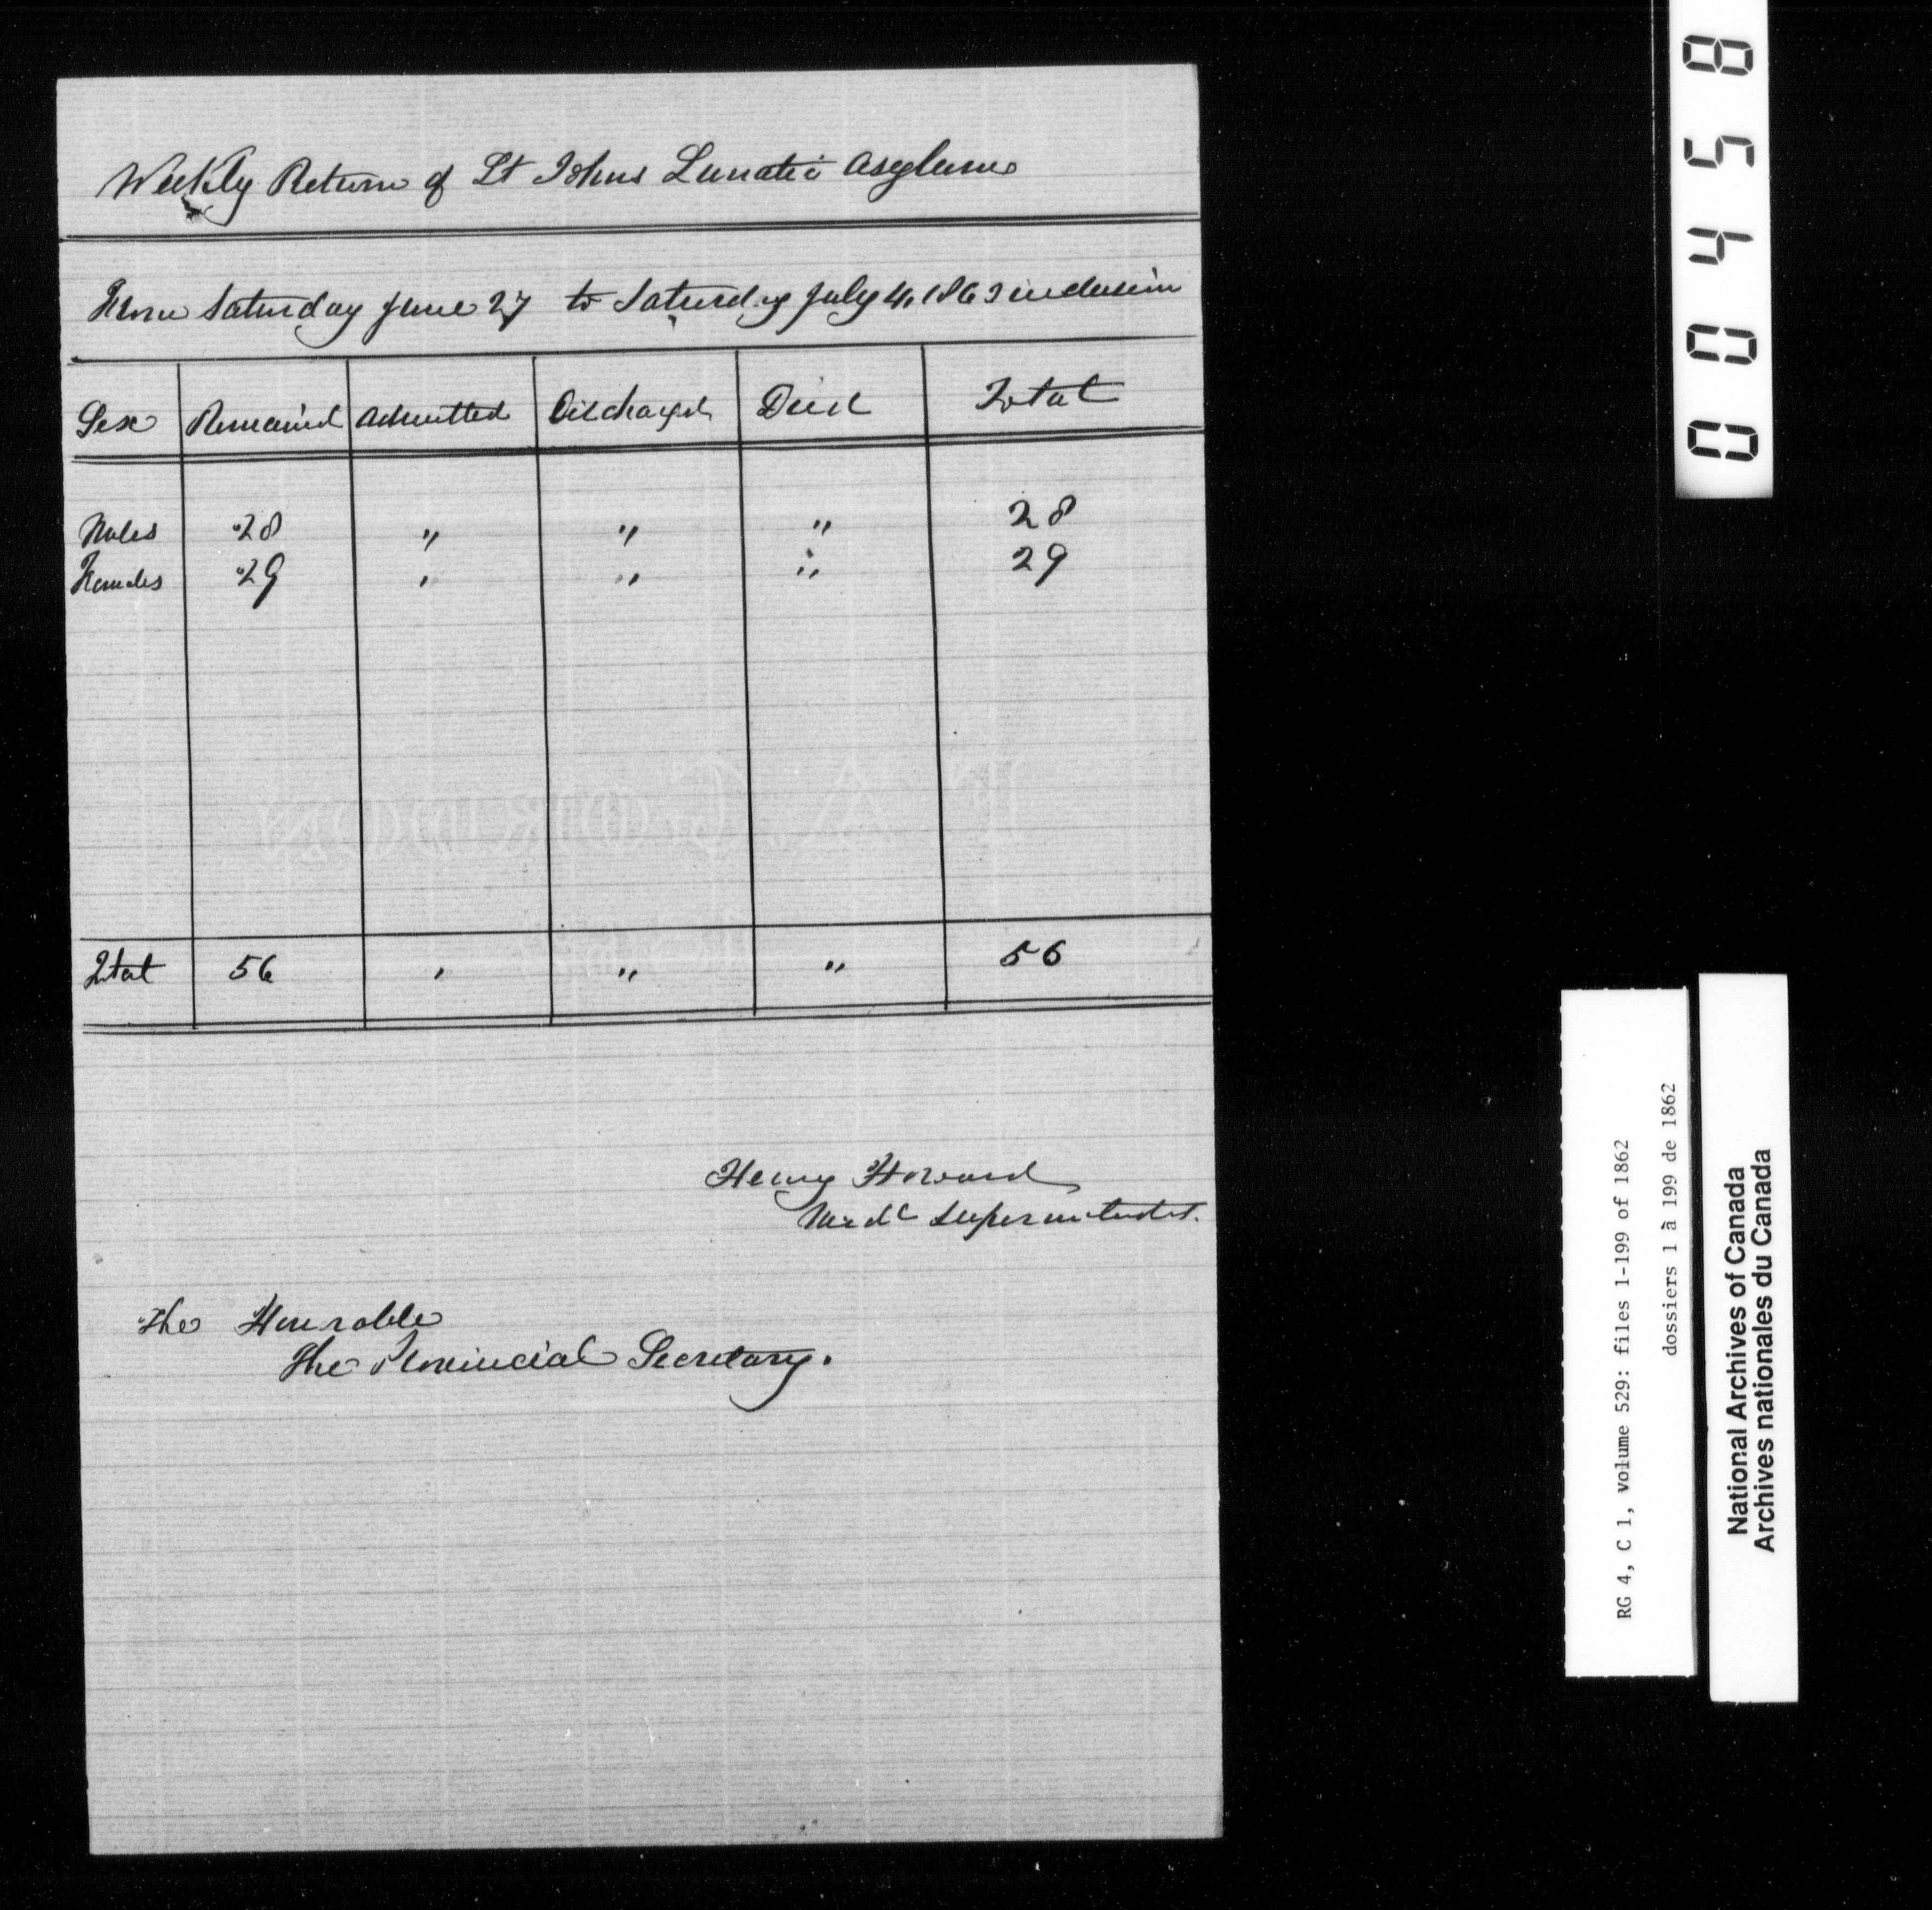 Weekly Return of St Johns Lunatic Asylum
From Saturday June 27 to Saturday July 4, 1863 inclusive
Sex Remained Admitted Discharged Died Total
Males 28 " " " 28
Females 29 " " " 29
Total 56 " " " 56
Henry Howard
Medl Superintendent.
The Honorable
The Provincial Secretary.
00458
RG 4, C 1, volume 529: files 1-199 of 1862
dossiers 1 à 199 de 1862
National Archives of Canada
Archives nationales du Canada